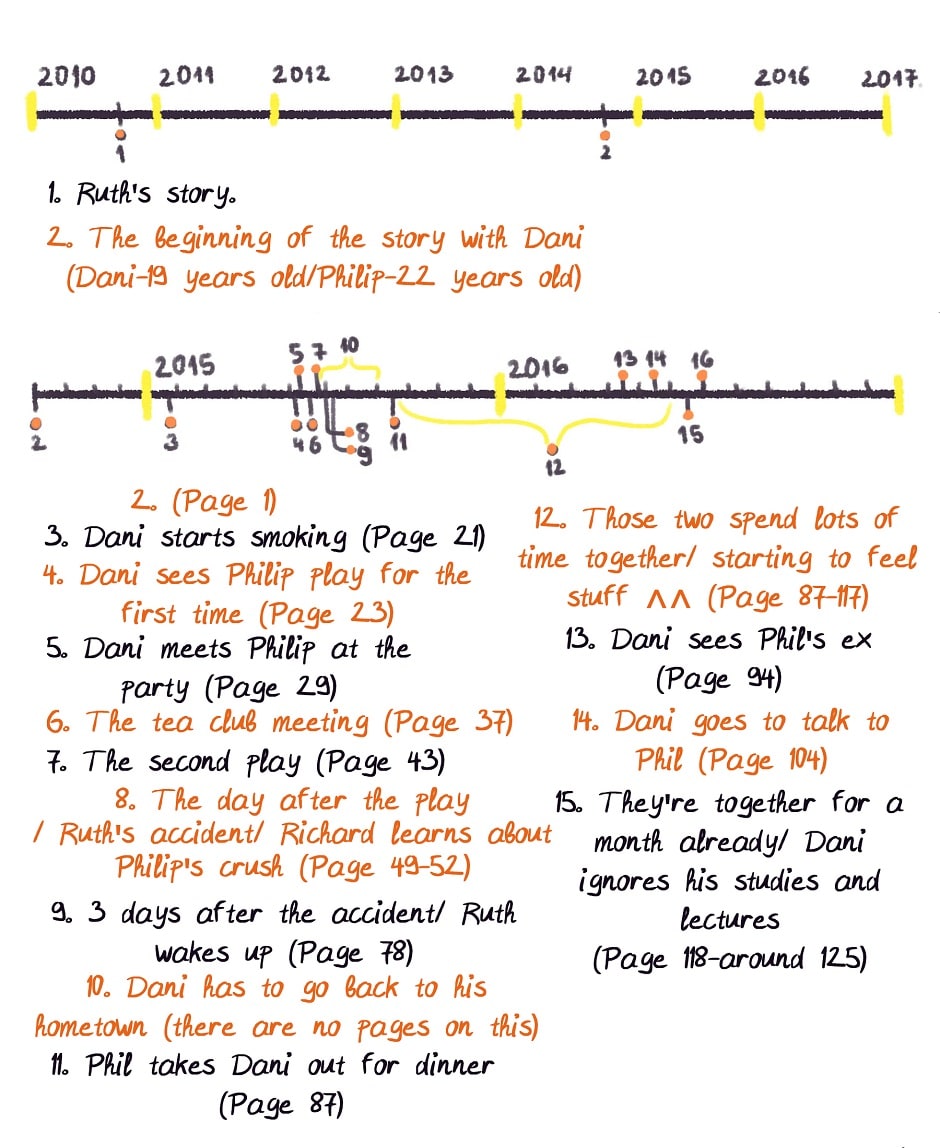 2010 2011 2012 2013 2014 2015 2016 2017
1 2
1. Ruth's story.
2. The beginning of the story with Dani
(Dani-19 years old/Philip-22 years old)
2015 5 7 10 2016 13 14 16
2 3 4 6 8 9 11 12 15
2. (Page 1)
3. Dani starts smoking (Page 21)
4. Dani sees Philip play for the
first time (Page 23)
5. Dani meets Philip at the
party (Page 29)
6. The tea club meeting (Page 37)
7. The second play (Page 43)
8. The day after the play
/ Ruth's accident/ Richard learns about
Philip's crush (Page 49-52)
9. 3 days after the accident/ Ruth
wakes up (Page 78)
10. Dani has to go back to his
hometown (there are no pages on this)
11. Phil takes Dani out for dinner
(Page 87)
12. Those two spend lots of
time together/ starting to feel
stuff ^^ (Page 87-117)
13. Dani sees Phil's ex
(Page 94)
14. Dani goes to talk to
Phil (Page 104)
15. They're together for a
month already/ Dani
ignores his studies and
lectures
(Page 118-around 125)